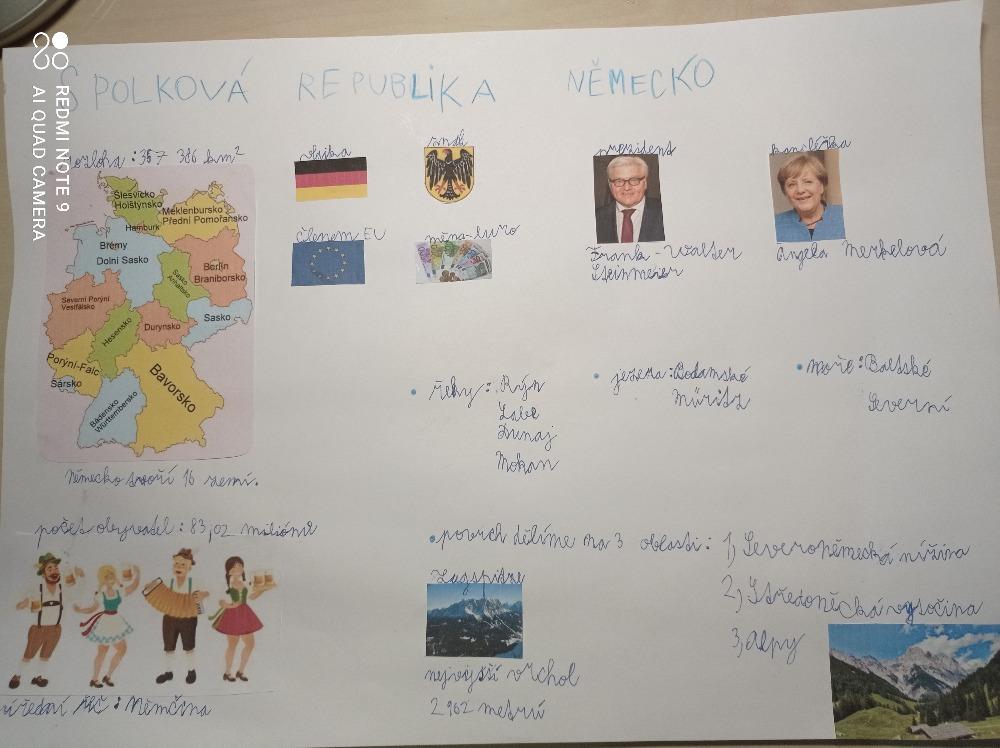 SPOLKOVÁ REPUBLIKA NĚMECKO
rozloha : 357 386 km²
vlajka
znak
prezident
kancléřka
Šlesvicko
Holštýnsko
Meklenbursko
Přední Pomořansko
Hamburk
Brémy
Dolní Sasko
Berlín
Braniborsko
Sasko
Anhaltsko
Severní Porýní
Vestfálsko
Hesensko
Durynsko
Sasko
Porýní-Falc
Sársko
Bavorsko
Bádensko
Württembersko
Členem EU
měna-euro
Frank-Walter
Steinmeier
Angela Merkelová
Německo tvoří 16 zemí.
• řeky : Rýn
Labe
Dunaj
Mohan
• jezera : Bodamské
Müritz
• moře : Baltské
Severní
počet obyvatel : 83,02 miliónů
úřední řeč : Němčina
• povrch dělíme na 3 oblasti : 1, Severoněmecká nížina
2, Středoněcká vysočina
3, Alpy
Zugspitze
nejvyšší vrchol
2 962 metrů
REDMI NOTE 9
AI QUAD CAMERA